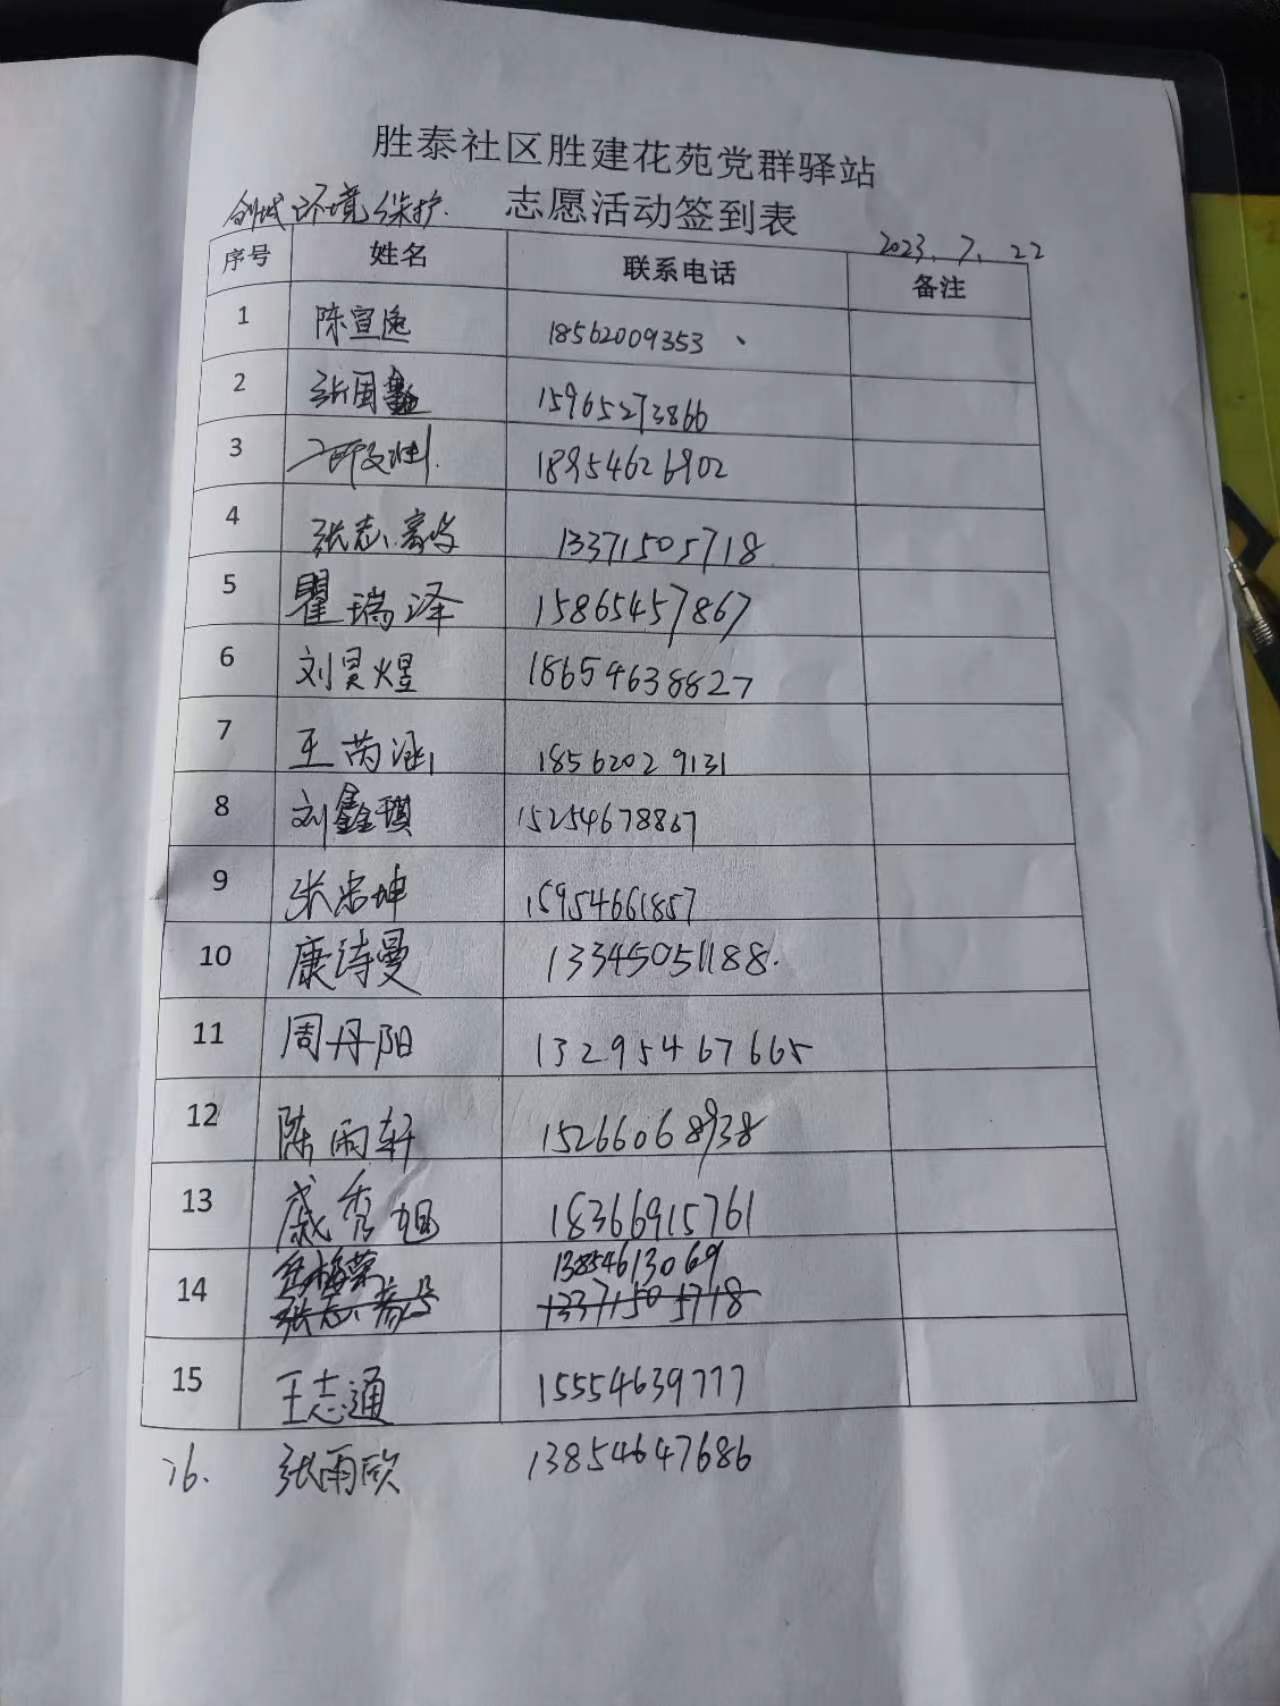 胜泰社区胜建花苑党群驿站
创城环境保护. 志愿活动签到表
2023.7.22
序号 姓名 联系电话 备注
1 陈宣逸 18562009353
2 张周鑫 15965273866
3 18954626902
4 张志 13371505718
5 瞿瑞泽 15865457867
6 刘昊煜 18654638827
7 王芮涵 18562029131
8 刘鑫琪 15254678867
9 张忠坤 15954661857
10 康诗曼 13345051188.
11 周丹阳 13295467665
12 陈雨轩 15266068938
13 戚秀旭 18366915761
14 13854613069
张志 13371505718
15 王志通 15554639777
16. 张雨欣 13854647686